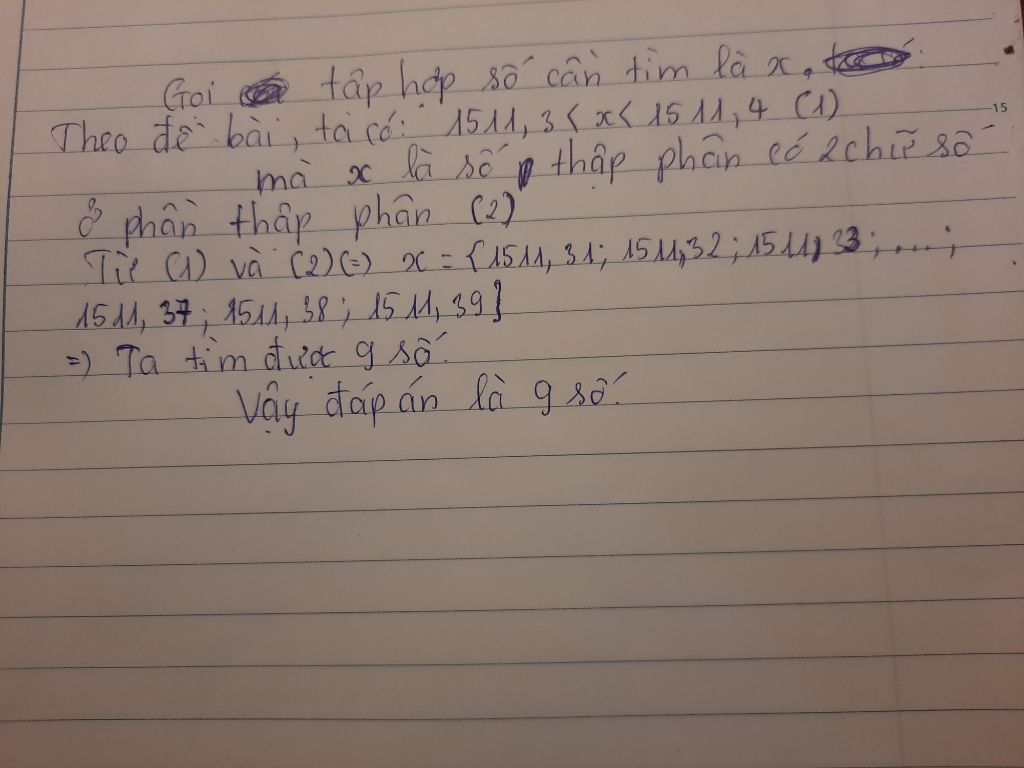 Gọi tập hợp số cần tìm là x.
Theo đề bài, ta có: 1511,3 < x < 1511,4 (1)
15
mà x là số thập phân có 2 chữ số
ở phần thập phân (2)
Từ (1) và (2) (=) x = {1511,31; 1511,32; 1511,33; ....;
1511,37; 1511,38; 1511,39}
=) Ta tìm được 9 số.
Vậy đáp án là 9 số.